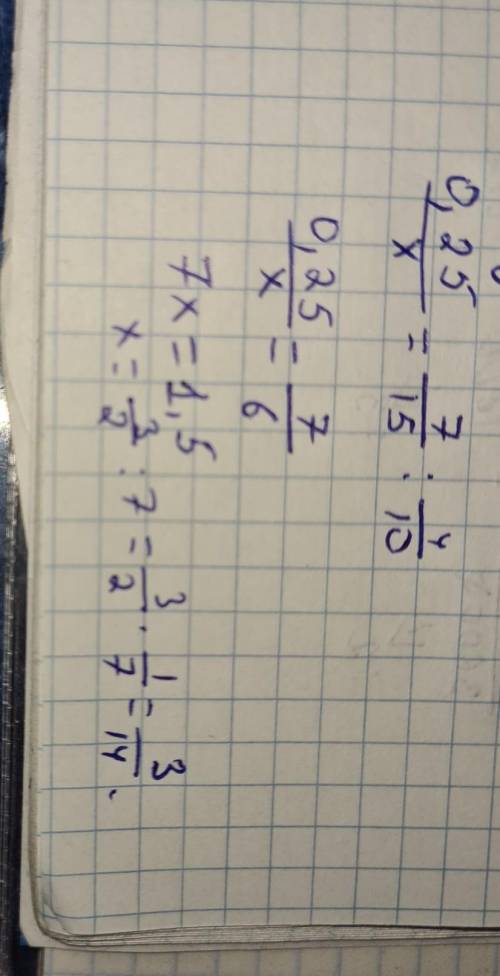 0,25/x = 7/15 : 4/10
0,25/x = 7/6
7x = 1,5
x = 3/2 : 7 = 3/2 · 1/7 = 3/14.